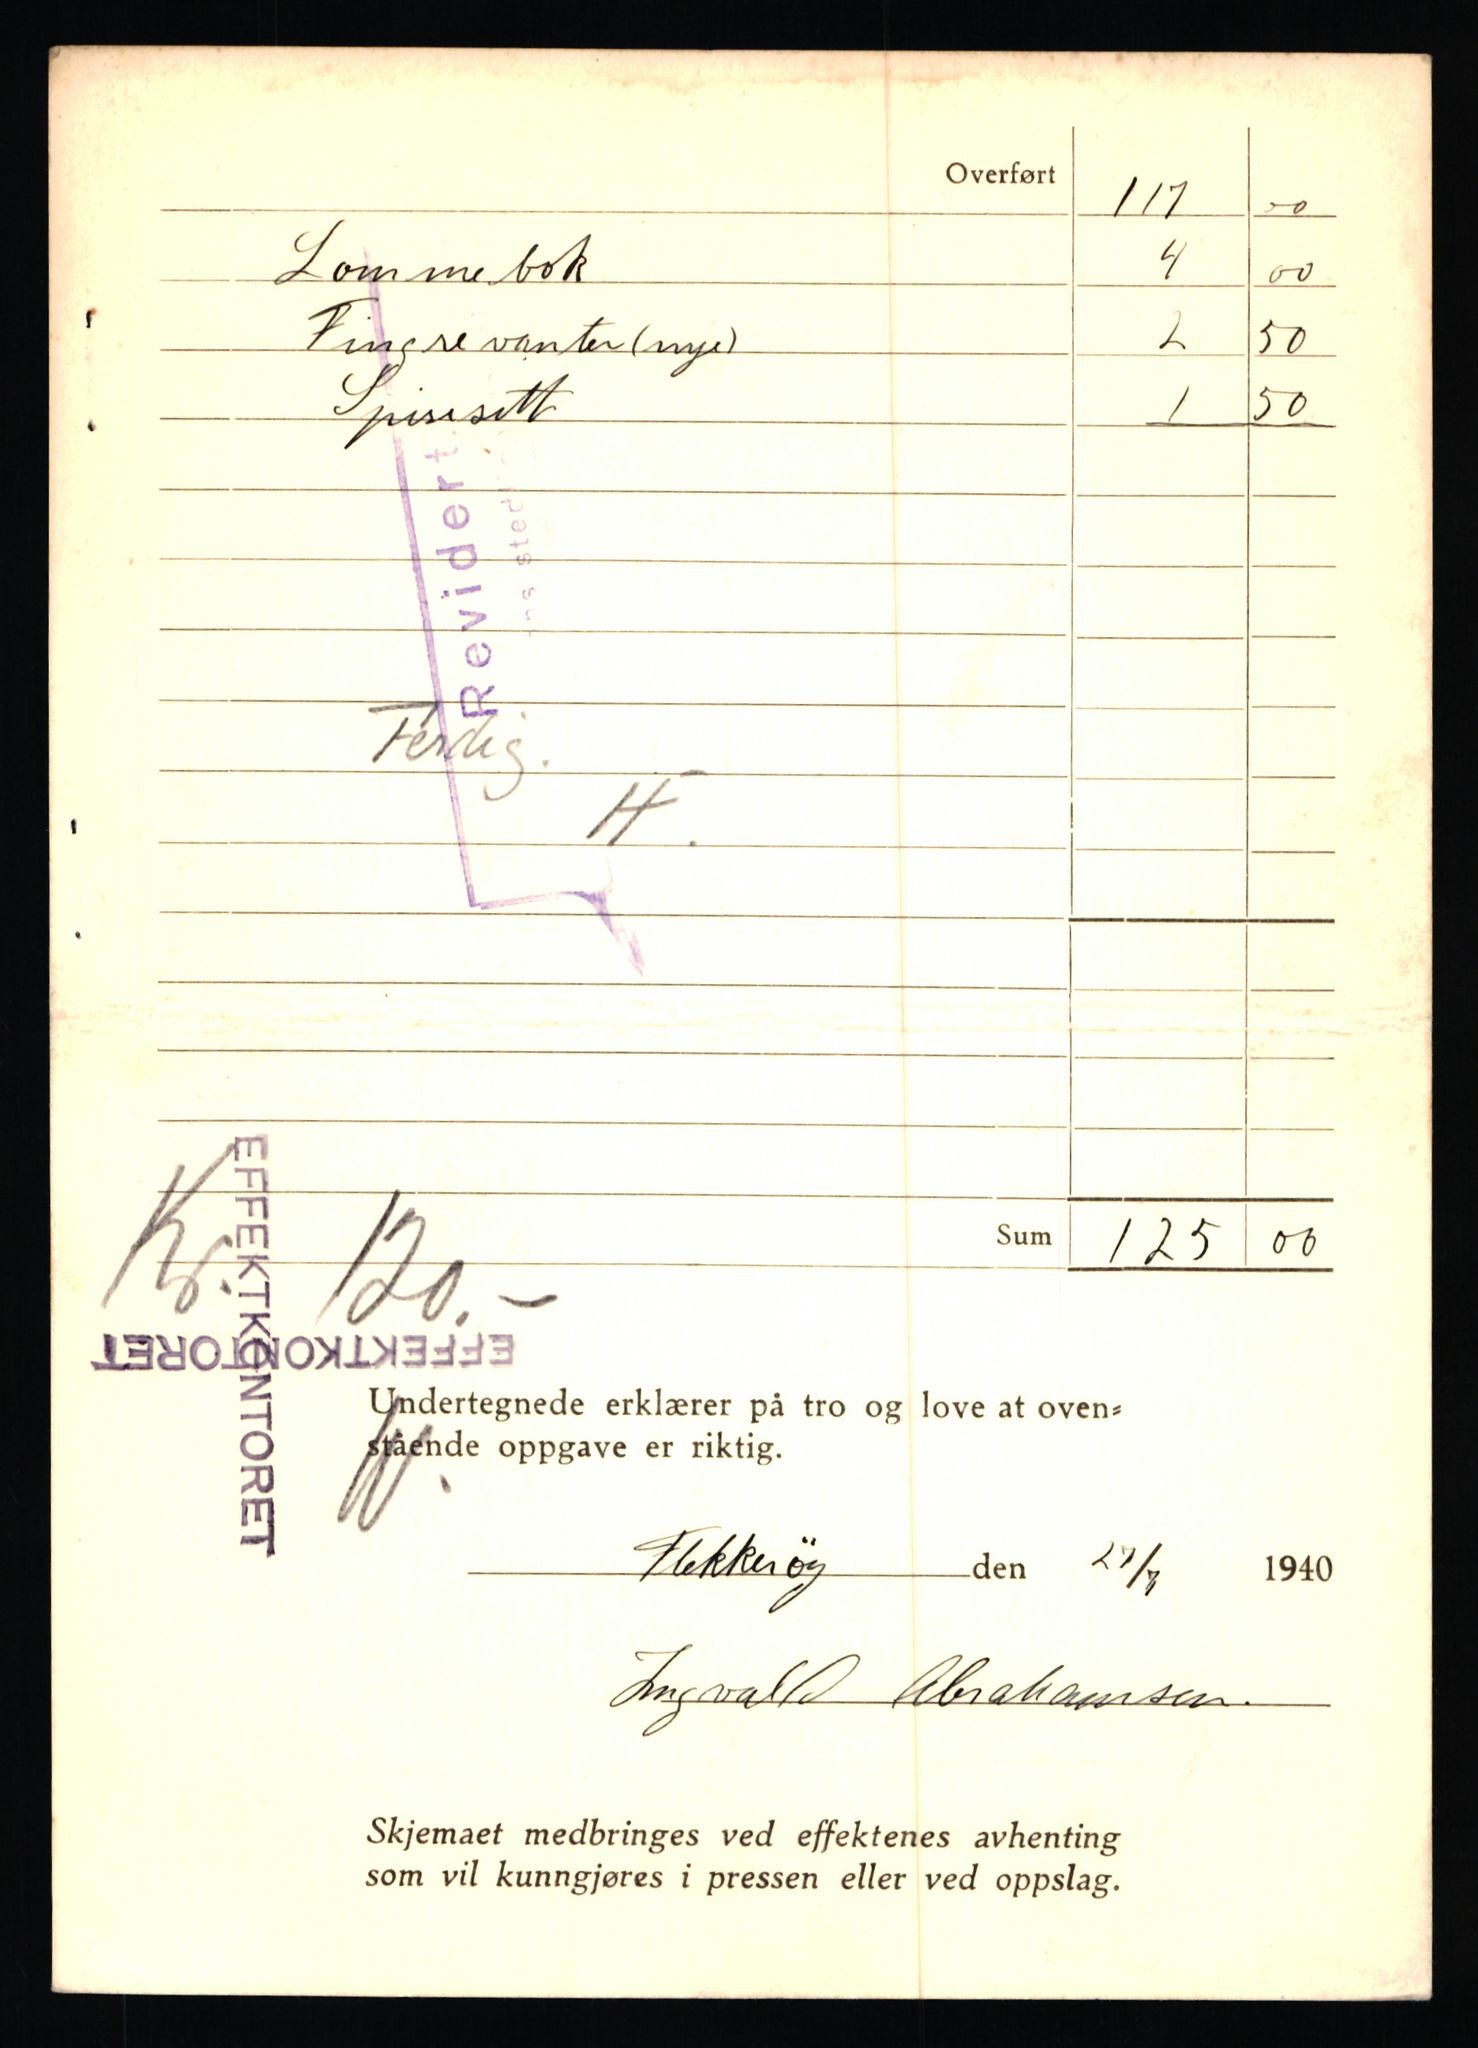 Overført 117 00
Lommebok 4 00
Fingrevanter (nye) 2 50
Spisesett 1 50
Revidert
Ferdig.
H.
Sum 125 00
Kr. 120.-
EFFEKTKONTORET
EFFEKTKONTORET
Undertegnede erklærer på tro og love at oven=
stående oppgave er riktig.
Flekkerøy den 27/7 1940
Ingvald Abrahamsen.
Skjemaet medbringes ved effektenes avhenting
som vil kunngjøres i pressen eller ved oppslag.